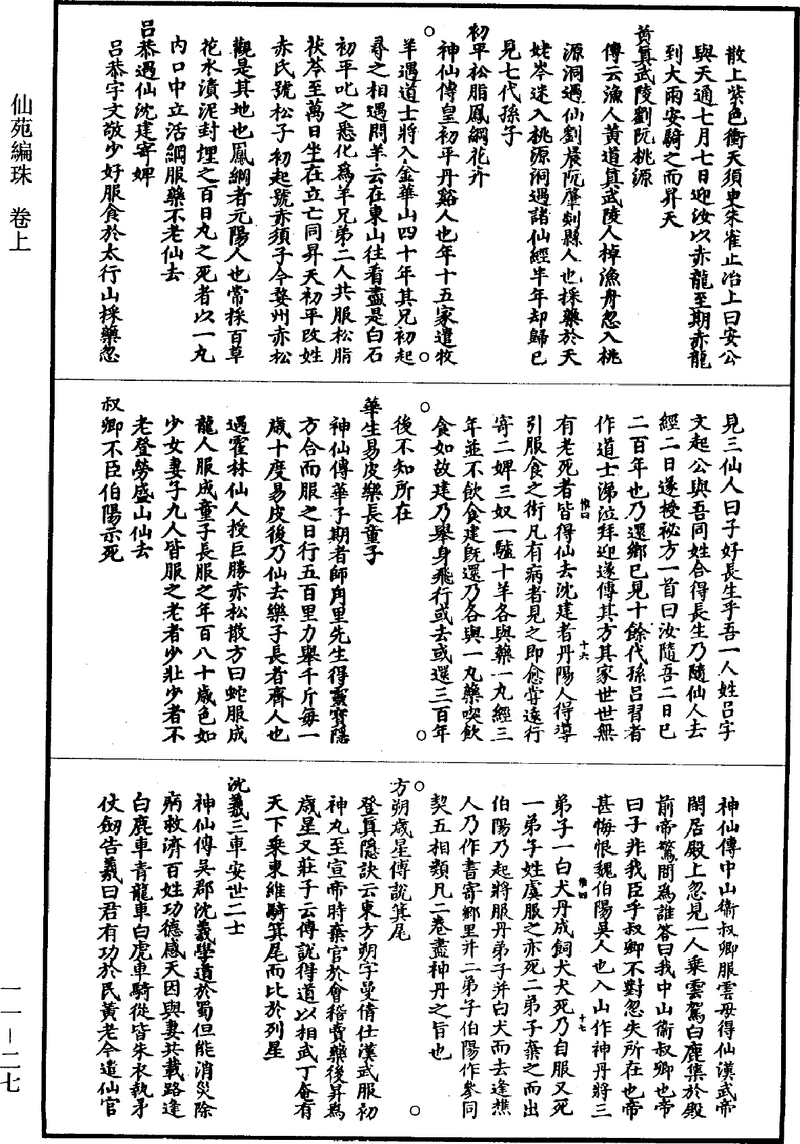 仙苑編珠　卷上
散上紫色衝天須臾朱雀止冶上曰安公
與天通七月七日迎汝以赤龍至期赤龍
到大雨安騎之而昇天
黃真武陵劉阮桃源
傳云漁人黃道真武陵人棹漁舟忽入桃
源洞遇仙劉晨阮肇剡縣人也採藥於天
姥岑迷入桃源洞遇諸仙經半年却歸已
見七代孫子
初平松脂鳳綱花卉
神仙傳皇初平丹谿人也年十五家遣牧
羊遇道士將入金華山四十年其兄初起
尋之相遇問羊云在東山往看盡是白石
初平叱之悉化為羊兄弟二人共服松脂
茯苓至萬日坐在立亡同昇天初平改姓
赤氏號松子初起號赤須子今婺州赤松
觀是其地也鳳綱者元陽人也常採百草
花水漬泥封埋之百日丸之死者以一丸
內口中立活綱服藥不老仙去
呂恭遇仙沈建寄婢
呂恭字文敬少好服食於太行山採藥忽
見三仙人曰子好長生乎吾一人姓呂字
文起公與吾同姓合得長生乃隨仙人去
經二日遂授祕方一首曰汝隨吾二日已
二百年也乃還鄉已見十餘代孫呂習者
作道士涕泣拜迎遂傳其方其家世世無
有老死者皆得仙去沈建者丹陽人得導
引服食之術凡有病者見之即愈嘗遠行
寄二婢三奴一驢十羊各與藥一丸經三
年並不飲食建既還乃各與一丸藥喫飲
食如故建乃舉身飛行或去或還三百年
後不知所在
華生易皮樂長童子
神仙傳華子期者師角里先生得靈寶隱
方合而服之日行五百里力舉千斤每一
歲十度易皮後乃仙去樂子長者齊人也
遇霍林仙人授巨勝赤松散方曰蛇服成
龍人服成童子長服之年百八十歲色如
少女妻子九人皆服之老者少壯少者不
老登勞盛山仙去
叔卿不臣伯陽示死
神仙傳中山衛叔卿服雲母得仙漢武帝
閑居殿上忽見一人乘雲駕白鹿集於殿
前帝驚問為誰答曰我中山衛叔卿也帝
曰子非我臣乎叔卿不對忽失所在也帝
甚悔恨魏伯陽吳人也入山作神丹將三
弟子一白犬丹成飼犬犬死乃自服又死
一弟子姓虞服之亦死二弟子棄之而出
伯陽乃起將服丹弟子并白犬而去逢樵
人乃作書寄鄉里并二弟子伯陽作參同
契五相類凡二卷盡神丹之旨也
方朔歲星傅說箕尾
登真隱訣云東方朔字曼倩仕漢武服初
神丸至宣帝時棄官於會稽賣藥後昇為
歲星又莊子云傅說得道以相武丁奄有
天下乘東維騎箕尾而比於列星
沈羲三車安世二士
神仙傳吳郡沈羲學道於蜀但能消災除
病救濟百姓功德感天因與妻共載路逢
白鹿車青龍車白虎車騎從皆朱衣執矛
仗劒告羲曰君有功於民黃老今遣仙官
十六
十七
一一－二七